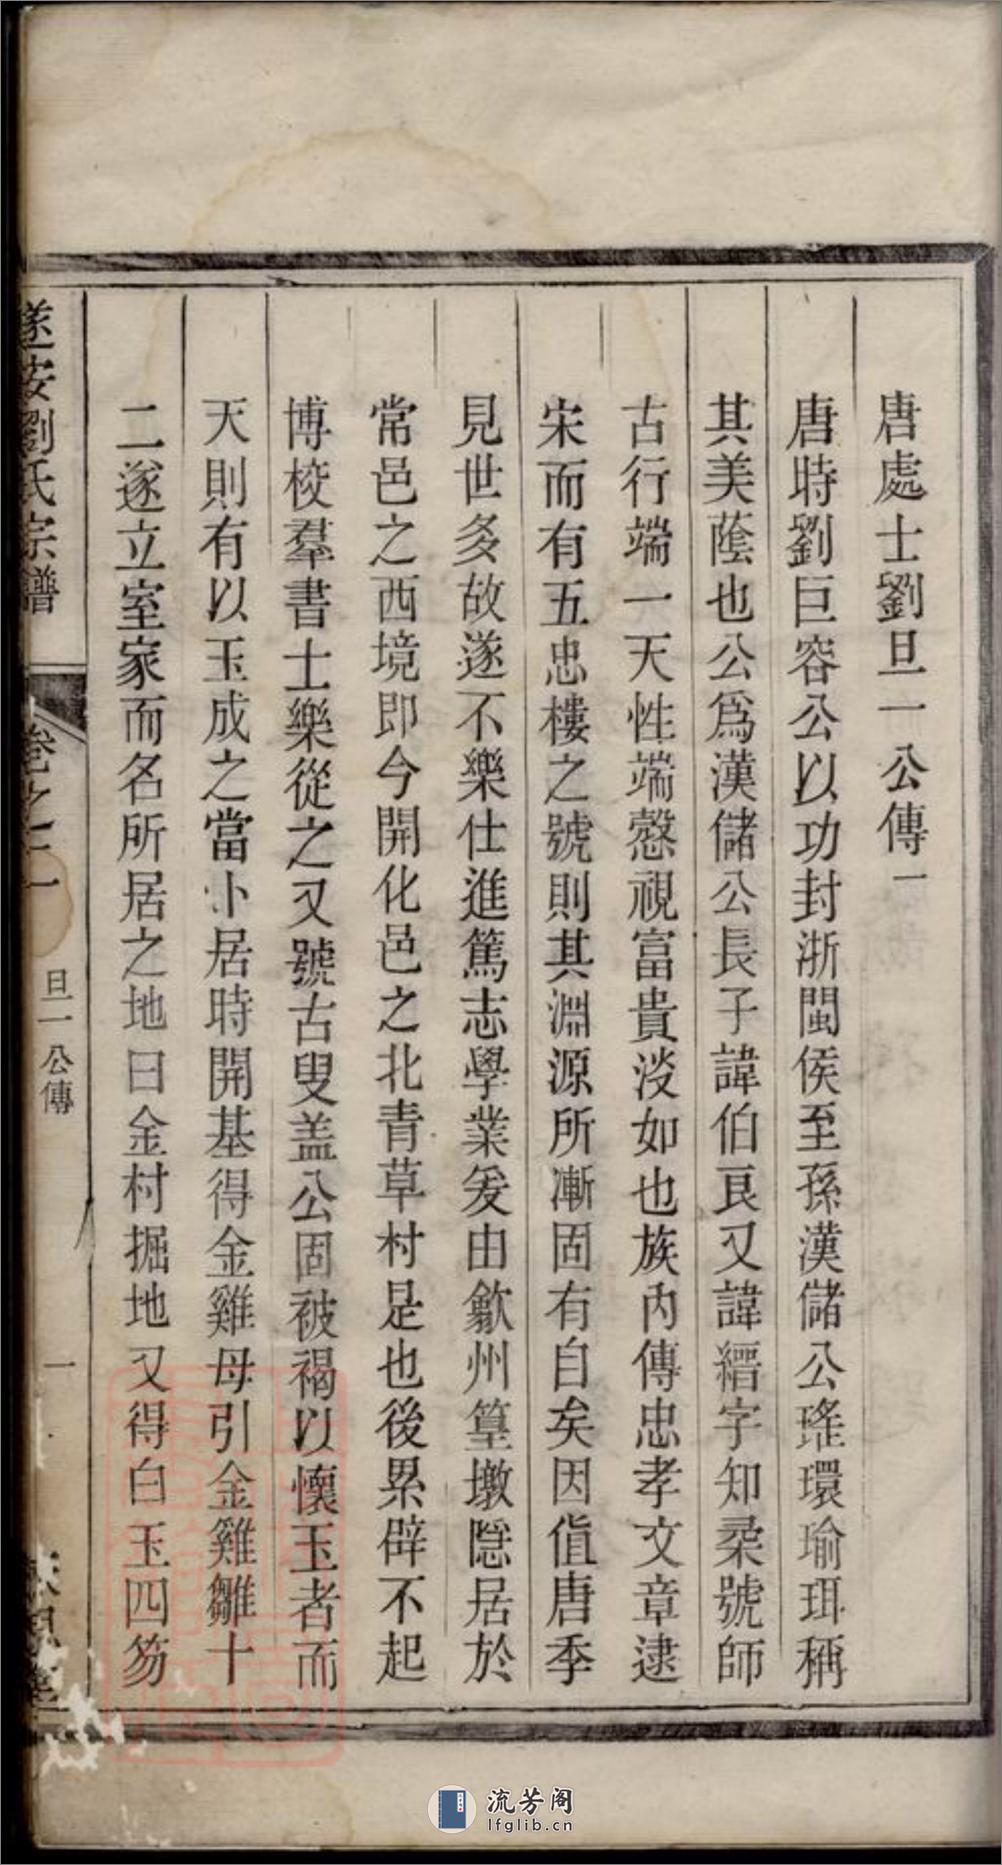 唐處士劉旦一公傳一
唐時劉巨容公以功封浙閩侯至孫漢儲公琟環瑜珥稱
其美蔭也公爲漢儲公長子諱伯良又諱縉字知柔號師
古行端一天性端慤視富貴淡如也族內傳忠孝文章逮
宋而有五忠樓之號則其淵源所漸固有自矣因值唐季
見世多故遂不樂仕進篤志學業爰由歙州篁墩隱居於
常邑之西境即今開化邑之北青草村是也後累辟不起
博校羣書士樂從之又號古叟盖公固被褐以懷玉者而
天則有以玉成之當卜居時開基得金雞母引金雞雛十
二遂立室家而名所居之地曰金村掘地又得白玉四笏
遂安劉氏宗譜
卷之一
旦一公傳
一
流芳阁
lfglib.cn